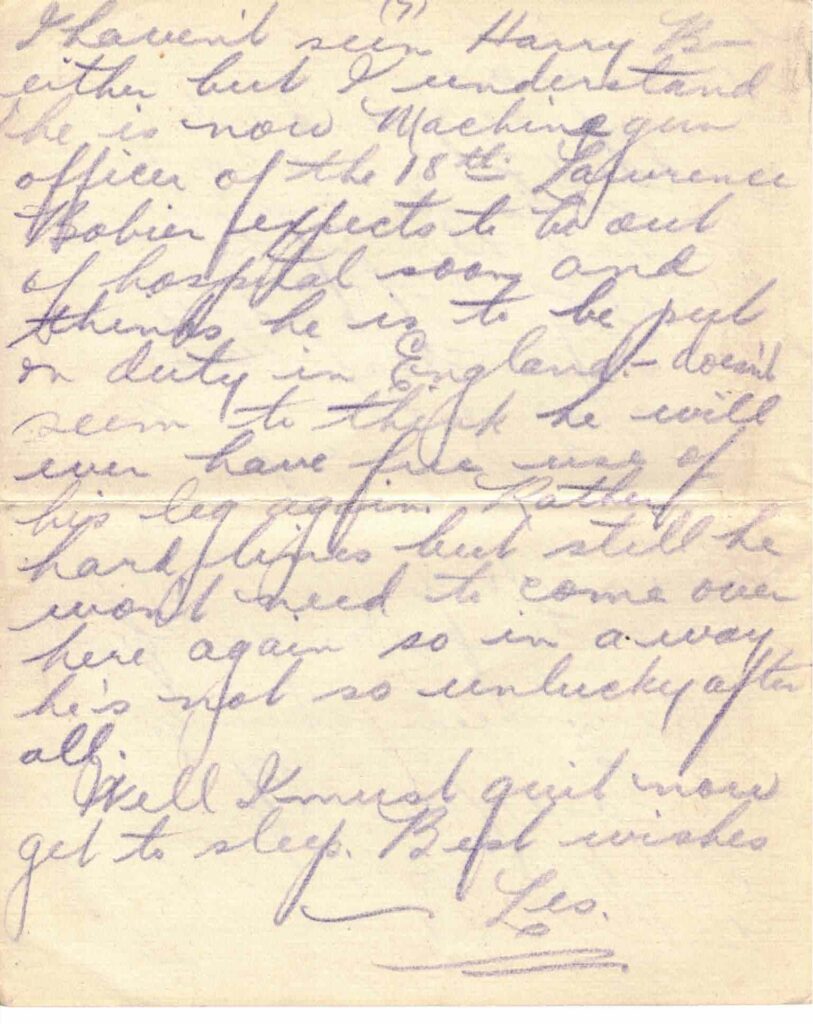 (7)
I haven't seen Harry B—
either but I understand
he is now Machine gun
officer of the 18th. Lawrence
Bobier expects to be out
of hospital soon and
thinks he is to be put
on duty in England. - doesn't
seem to think he will
ever have free use of
his leg again. Rather
hard lines but still he
won't need to come over
here again so in a way
he's not so unlucky after
all.
Well I must quit now
get to sleep. Best wishes
Les.